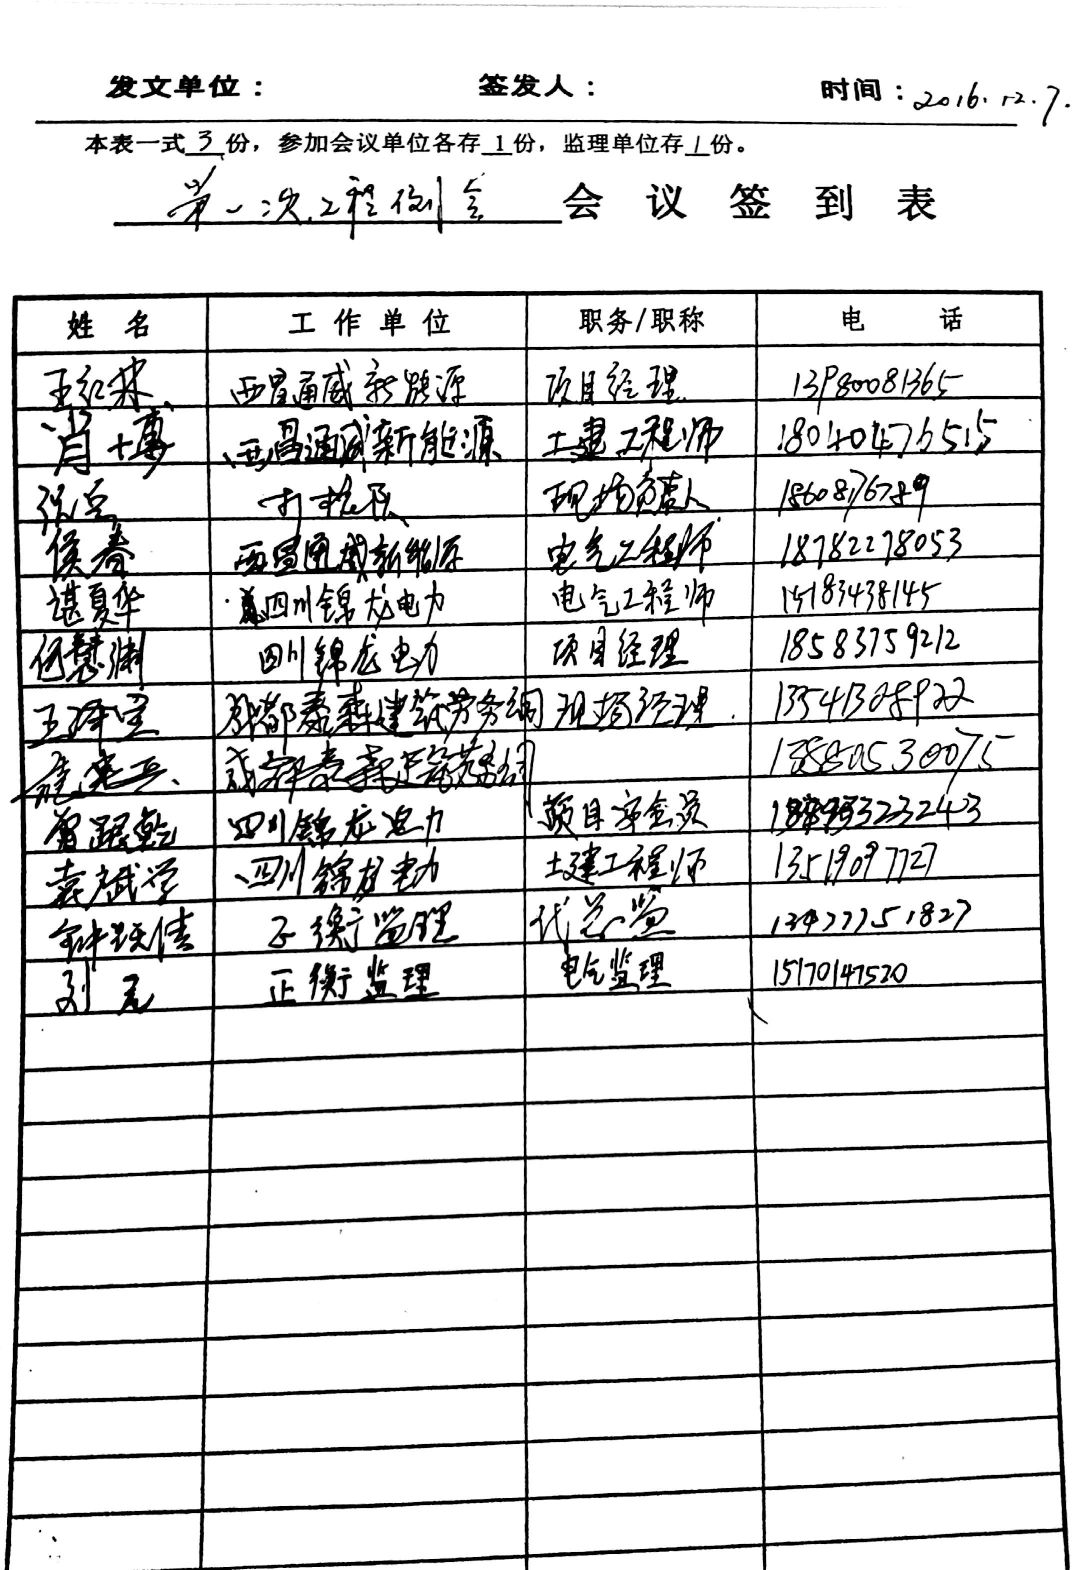 发文单位： 签发人： 时间：2016.12.7.
本表一式3份，参加会议单位各存1份，监理单位存1份。
第一次工程例会 会议签到表
姓名 工作单位 职务/职称 电话
王红林 西昌通威新能源 项目经理 13980081365
肖博 西昌通威新能源 土建工程师 18040476515
打桩队 现场负责人
侯春 西昌通威新能源 电气工程师 18782278053
谌夏华 四川锦龙电力 电气工程师 15183438145
何慧渊 四川锦龙电力 项目经理 18583759212
王泽宝 成都泰森建筑劳务公司 现场经理 13541328922
成都泰森建筑劳务公司 13880530075
四川锦龙电力 项目安全员
袁斌学 四川锦龙电力 土建工程师 13519097727
正衡监理 代总监 13477751827
刘亮 正衡监理 电气监理 15170147520